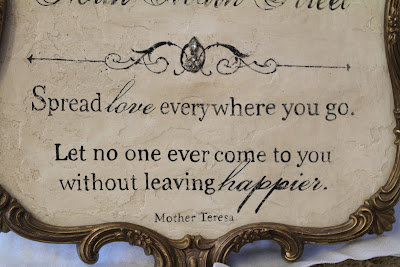 Street
Spread love everywhere you go.
Let no one ever come to you
without leaving happier.
Mother Teresa